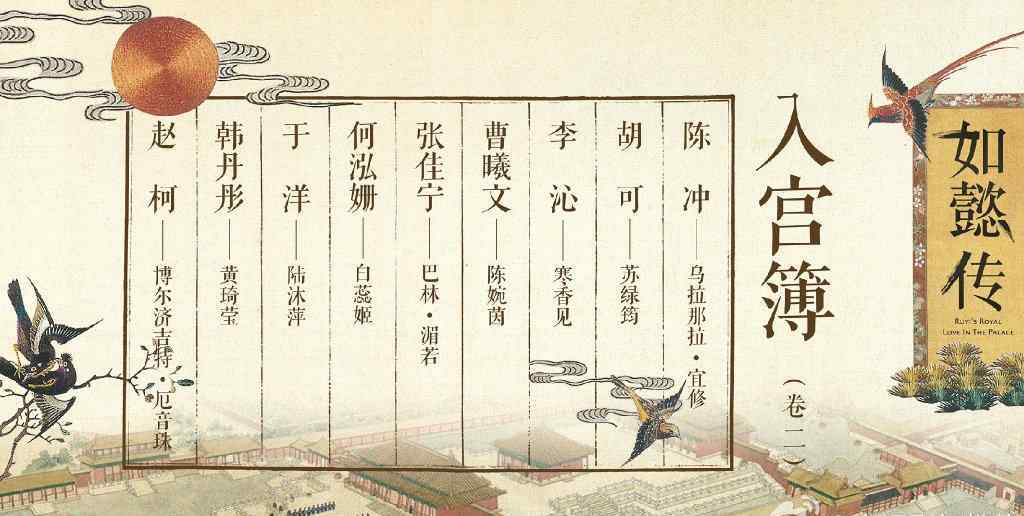 如懿传
RUYI'S ROYAL
LOVE IN THE PALACE
入宫簿
(卷二)
陈冲——乌拉那拉·宜修
胡可——苏绿筠
李沁——寒香见
曹曦文——陈婉茵
张佳宁——巴林·湄若
何泓姗——白蕊姬
于洋——陆沐萍
韩丹彤——黄琦莹
赵柯——博尔济吉特·厄音珠